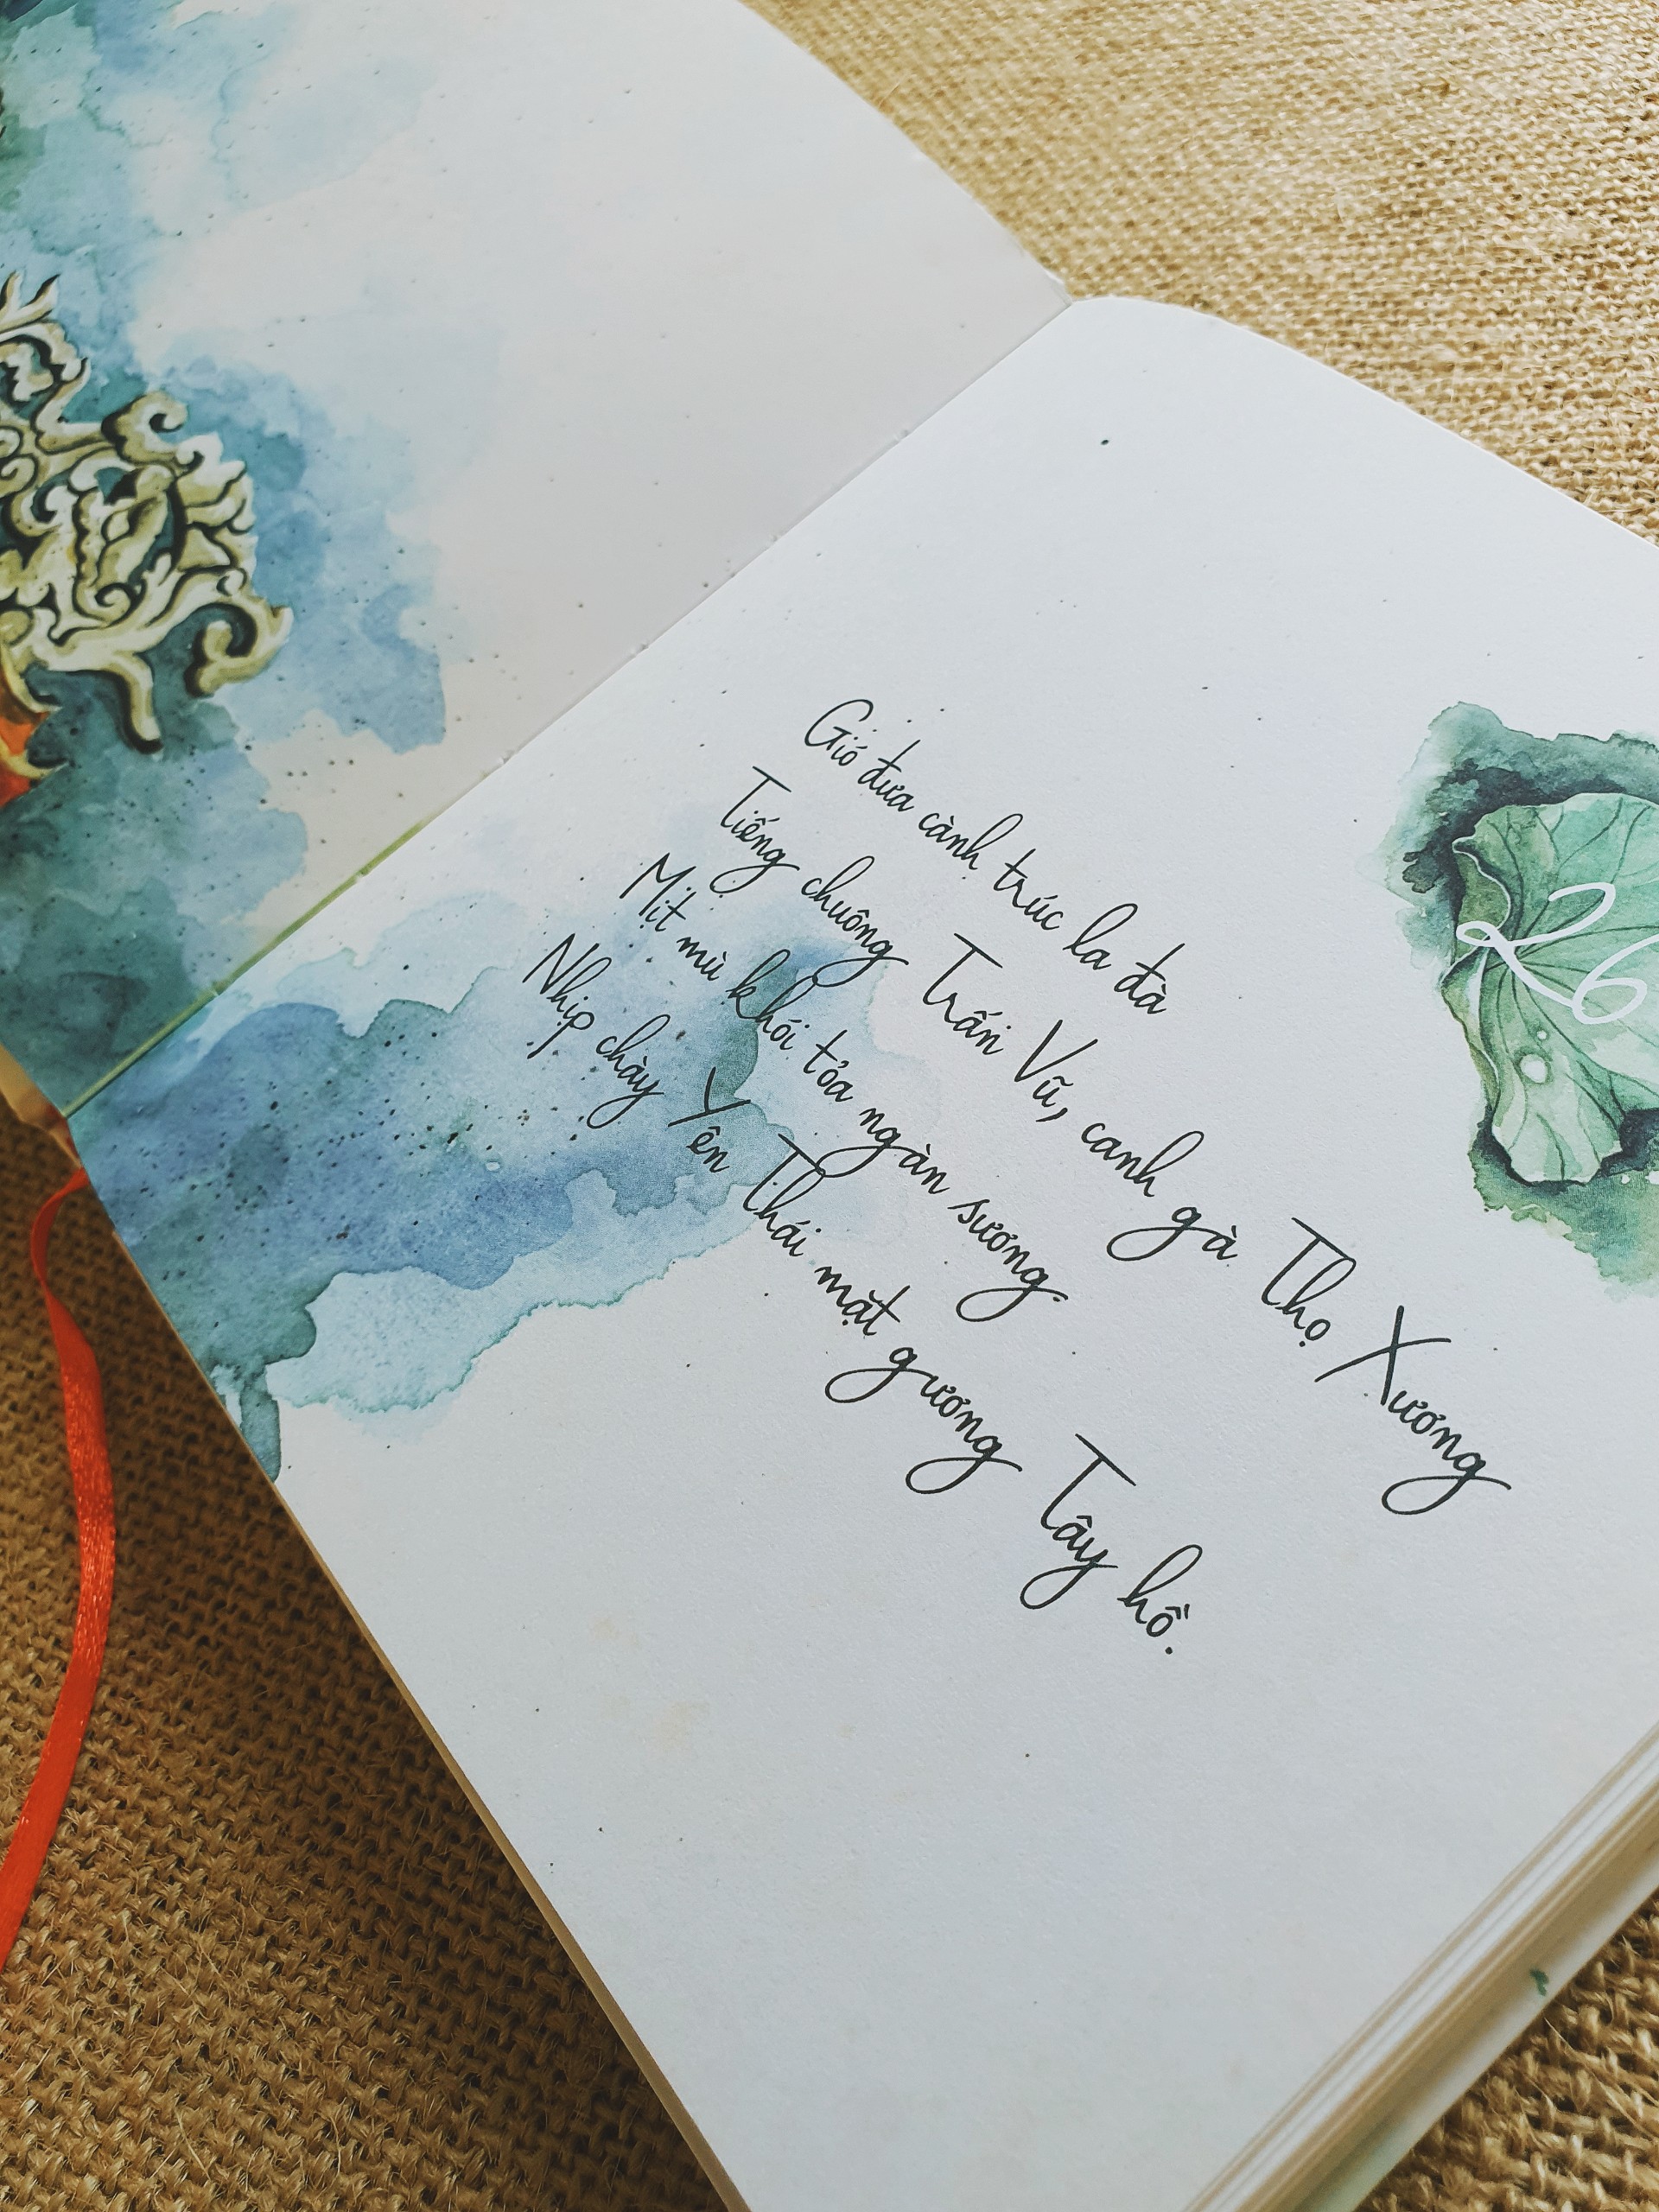 Gió đưa cành trúc la đà
Tiếng chuông Trấn Vũ, canh gà Thọ Xương
Mịt mù khói tỏa ngàn sương
Nhịp chày Yên Thái mặt gương Tây hồ.
26